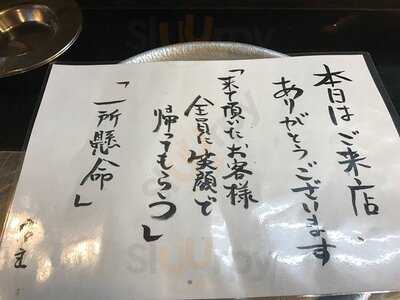 本日はご来店、
ありがとうございます
「来て頂いたお客様
全員に笑顔で
帰ってもらう」
「一所懸命」
主